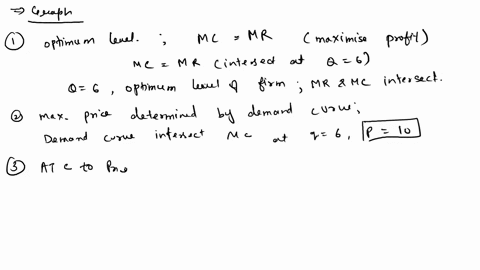 → Graph
① optimum level ; MC = MR (maximise profit)
MC = MR (intersect at Q = 6)
Q = 6, optimum level of firm ; MR & MC intersect.
② max. price determined by demand curve ;
Demand curve intersect MC at q = 6, P = 10
③ ATC to